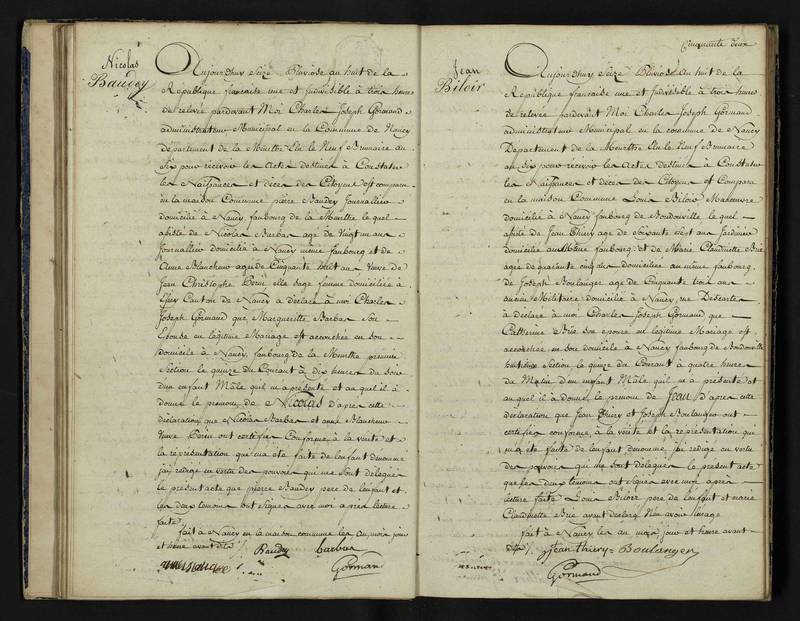 Nicolas
Baudey
Aujourdhuy Seize Pluviose an huit de la
République francaise une et Indivisible à trois heures
de relevée pardevant Moi Charles Joseph Gormand
administrateur Municipal en la Commune de Nancy
département de la Meurthe Elu le Neuf Brumaire an
Six pour recevoir les Actes destinés à Constater
les Naissances et décès des Citoyens est comparu
en la maison Commune pierre Baudey Journallier
domicilié à Nancy faubourg de la Meurthe le quel
assisté de Nicolas Barbas agé de Vingt un ans
Journallier domicilié à Nancy même faubourg et de
Anne Blancheur agée de Cinquante huit ans Veuve de
Jean Christophe sage femme domiciliée à
Canton de Nancy a déclaré à moi Charles
Joseph Gormand que Margueritte Barbas Son
Epouse en légitime Mariage est accouchée en son
domicile à Nancy faubourg de la Meurthe premiere
Section le quinze du Courant à dix heures du soir
dun enfant Mâle quil m'a présenté et auquel il à
donné le prenom de Nicolas d'après cette
déclaration que Nicolas Barbas et anne Blancheur
Veuve ont certifiée Conforme à la vérité et
la représentation qui m'a été faite de lenfant denommé
jai rédigé en vertu des pouvoirs qui me sont délégués
le présent acte que pierre Baudey pere de lenfant et
les deux temoins ont signés avec moi après lecture
faite
fait à Nancy en la maison commune les an mois jour
et heure avant dits Baudey barbas
Gormand
Cinquante deux
Jean
Biloir
Aujourdhuy Seize Pluviose an huit de la
République francaise une et Indivisible à trois heures
de relevée pardevant Moi Charles Joseph Gormand
administrateur Municipal en la commune de Nancy
Département de la Meurthe Elu le Neuf Brumaire
an Six pour recevoir les Actes destinés à Constater
les Naissances et décès des Citoyens est Comparu
en la maison Commune Louis Biloir Manœuvre
domicilié à Nancy faubourg de Boudonville le quel
assisté de Jean Thiery agé de Soixante Sept ans Jardinier
domicilié au même faubourg et de Marie Claudinette Brie
agée de quarante cinq ans domiciliée au même faubourg,
de Joseph Boulanger agé de Cinquante trois ans
ancien Militaire domicilié à Nancy, rue Descartes
à déclaré à moi Charles Joseph Gormand que
Catherine Brie son epouse en légitime Mariage est
accouchée en son domicile à Nancy faubourg de Boudonville
huitième Section le quinze du Courant à quatre heures
du Matin d'un enfant Mâle quil m'a présenté et
auquel il à donné le prenom de Jean d'après cette
déclaration que Jean Thiery et Joseph Boulanger ont
certifiée conforme à la vérité et la représentation qui
m'a été faite de lenfant denommé, jai rédigé en vertu
des pouvoirs qui me sont délégués le présent acte
que les deux temoins ont signés avec moi après
lecture faite Louis Biloir pere de lenfant et marie
Claudinette Brie ayant déclaré n'en avoir lusage
fait à Nancy les an mois jour et heure avant
dits / Jean thiery Boulanger
Gormand